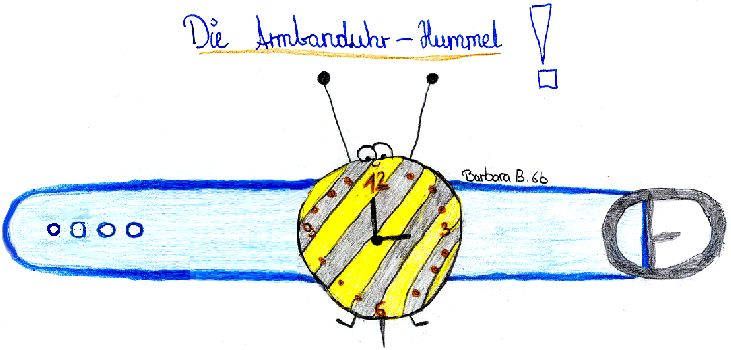 Die Armbanduhr-Hummel!
Barbara B. 6b
12
9 3
6